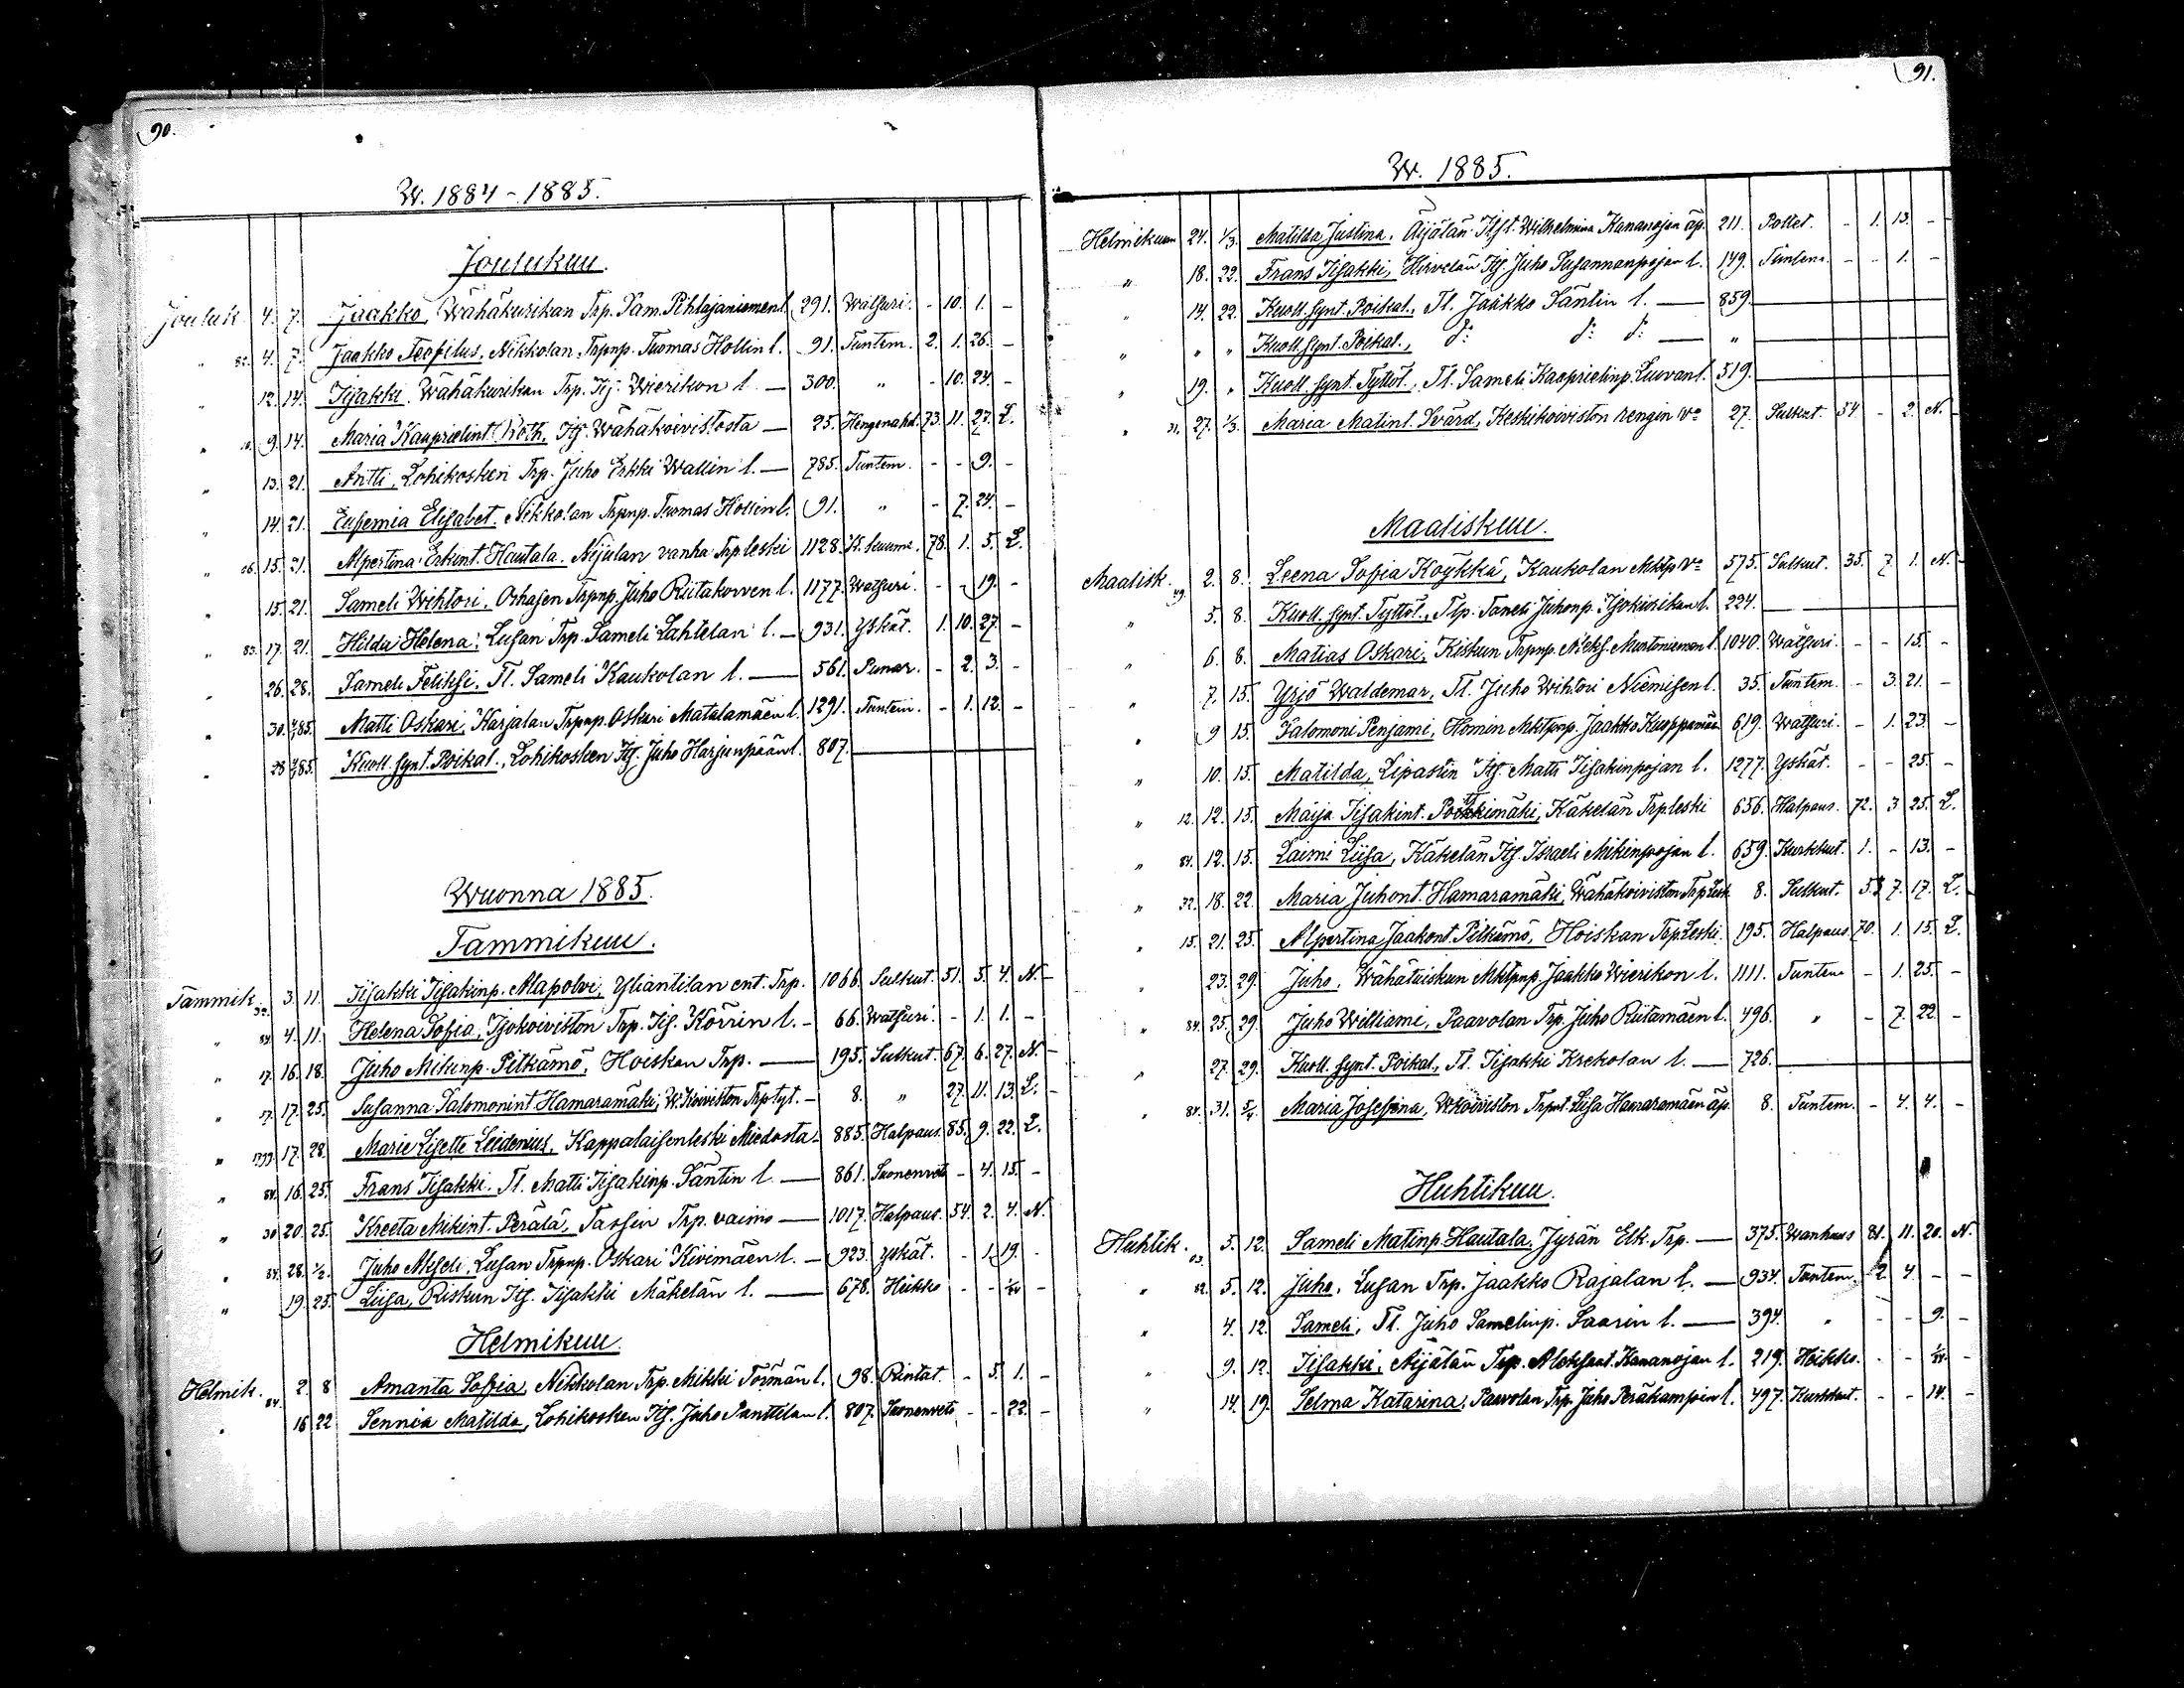 90.
W. 1884-1885.
Joulukuu.
Jouluk. 4. 7. Jaakko, Wähäkurikan Trp. Sam. Pihlajaniemen l. 291. Watsuri. - 10. 1. -
" 82. 4. 7. Jaakko Teofilus, Nikkolan Trpnp. Tuomas Hollin l. 91. Tuntem. 2. 1. 26. -
" 12. 14. Iisakki. Wähäkurikan Trp. Iis. Wierikon l. 300. " - 10. 24. -
" 9. 14. Maria Kauprielint. Roth, Itj. Wähäkoivistosta 25. Hengenahd. 73. 11. 27. L.
" 13. 21. Antti, Lohikosken Trp. Juho Erkki Wallin l. 785. Tuntem. - - 9. -
" 14. 21. Eufemia Elisabet. Nikkolan Trpnp. Tuomas Hollin l. 91. " - 7. 24. -
" 06. 15. 21. Alpertina Erkint. Hautala. Nijulan vanha Trp leski 1128. 78. 1. 5. L.
" 15. 21. Sameli Wihtori, Orhasen Trpnp. Juho Riitakorven l. 1177. Watsuri. - - 19. -
" 83. 17. 21. Hilda Helena, Lusan Trp. Sameli Lahtelan l. 931. Yskät. 1. 10. 27. -
" 26. 28. Sameli Feliksi. Tl. Sameli Kaukolan l. 561. Punar. - 2. 3. -
" 30. 4/1 85. Matti Oskari, Karjalan Trpnp. Oskari Matalamäen l. 1291. Tuntem. - 1. 12. -
" 28. 85. Kuoll. synt. Poikal., Lohikosken Itj. Juho Harjunpään l. 807.
Wuonna 1885.
Tammikuu.
Tammik. 33. 3. 11. Iisakki Iisakinp. Alapolvi, Yliantilan ent. Trp. 1066. Sulkut. 51. 5. 4. N. -
" 84. 4. 11. Helena Sofia, Isokoiviston Trp. Iis. Körrin l. 66. Watsuri. - 1. 1. -
" 17. 16. 18. Juho Mikinp. Pitkämö, Hoiskan Trp. 195. Sulkut. 67. 6. 27. N. -
" 57. 17. 25. Susanna Salomonint Hamaramäki, W. Koiviston Trp tyt. 8. " 27. 11. 13. L. -
" 1799. 17. 28. Marie Lisette Leidenius, Kappalaisenleski Miedosta 885. Halpaus. 85. 9. 22. L.
" 84. 16. 25. Frans Iisakki. Tl. Matti Iisakinp. Säntin l. 861. Suonenveto - 4. 15. -
" 30. 20. 25. Kreeta Mikint. Perälä, Tassin Trp. vaimo 1017. Halpaus. 54. 2. 4. N.
" 84. 28. 1/2. Juho Akseli, Lusan Trpnp. Oskari Kivimäen l. 923. Yskät. - 1. 19. -
" 19. 25. Liisa, Riskun Itj. Iisakki Mäkelän l. 678. Heikko - - 1/24 -
Helmikuu.
Helmik. 84. 2. 8 Amanta Sofia, Nikkolan Trp. Mikki Törmän l. 98. Rintat. - 5. 1. -
" 16 22 Sennia Matilda, Lohikosken Itj. Juho Panttilan l. 807. Suonenveto - - 22. -
91.
W. 1885.
Helmikuun 24. 1/3. Matilda Justina. Äijälän Itjt. Wilhelmina Kananojan äp. 211. Pollet. - 1. 13. -
" 18. 22. Frans Iisakki, Hirvelän Itj. Juho Susannanpojan l. 149. Tuntem. - - 1. -
" 14. 22. Kuoll. synt. Poikal., Tl. Jaakko Säntin l. 859.
" " " Kuoll. synt. Poikal., d:o d:o d:o "
" 19. " Kuoll. synt. Tyttöl., Tl. Sameli Kauprielinp. Luovan l. 519.
" 31. 27. 1/3. Maria Matint. Svärd, Keskikoiviston rengin vo 27. Sulkut. 54 - 2. N.
Maaliskuu.
Maalisk. 49. 2. 8. Leena Sofia Köykkä, Kaukolan Mktp vo 575. Sulkut. 35. 7. 1. N. -
" 5. 8. Kuoll. synt. Tyttöl., Trp. Taneli Juhonp. Isokurikan l. 224.
" 6. 8. Matias Oskari, Kiskun Trpnp. Nieks. Murtoniemen l. 1040. Watsuri. - - 15. -
" 7. 15. Yrjö Waldemar, Tl. Juho Wihtori Niemisen l. 35. Tuntem. - 3. 21. -
" 9 15. Salomoni Penjami, Homin Mktpnp. Jaakko Kuoppamäen 619. Watsuri. - 1. 23. -
" 10. 15. Matilda, Lipastin Itj. Matti Iisakinpojan l. 1277. Yskät. - - 25. -
" 12. 12. 15. Maija Iisakint. Poikkimäki, Käkelän Trp leski 656. Halpaus. 72. 3 25. L.
" 84. 12. 15. Laimi Liisa, Käkelän Itj. Israeli Mikinpojan l. 659. Kurkkut. 1. - 13. -
" 32. 18. 22. Maria Juhont. Hamaramäki, Wähäkoiviston Trp Lesk 8. Sulkut. 53 7. 17. L. -
" 15. 21. 25. Alpertina Jaakont. Pitkämö, Hoiskan Trp. Leski 195. Halpaus 70. 1. 15. L.
" 23. 29. Juho, Wähätuiskun Mktpnp Jaakko Wierikon l. 1111. Tuntem - 1. 25. -
" 84. 25. 29. Juho Williami, Paavolan Trp. Juho Riitamäen l. 496. " - 7. 22. -
" 27. 29. Kuoll. synt. Poikal., Tl. Iisakki Krekolan l. 726.
" 84. 31. 5/4. Maria Josefina, W.koiviston Trpnt. Liisa Hamaramäen äp. 8. Tuntem. - 4. 4. -
Huhtikuu.
Huhtik. 03. 3. 12. Sameli Matinp. Hautala. Jyrän Elk. Trp. 375. Wanhuus 81. 11. 20. N.
" 82. 5. 12. Juho, Lusan Trp. Jaakko Rajalan l. 934. Tuntem. 2 4. - -
" 4. 12. Sameli, Tl. Juho Samelinp. Saarin l. 394. " - - 9. -
" 9. 12. Iisakki, Äijälän Trp. Aleksant. Kananojan l. 219. Heikko. - - 1/24. -
" 14. 19. Selma Katarina, Paavolan Trp. Juho Peräkampin l. 497. Kurkkut. - - 14. -